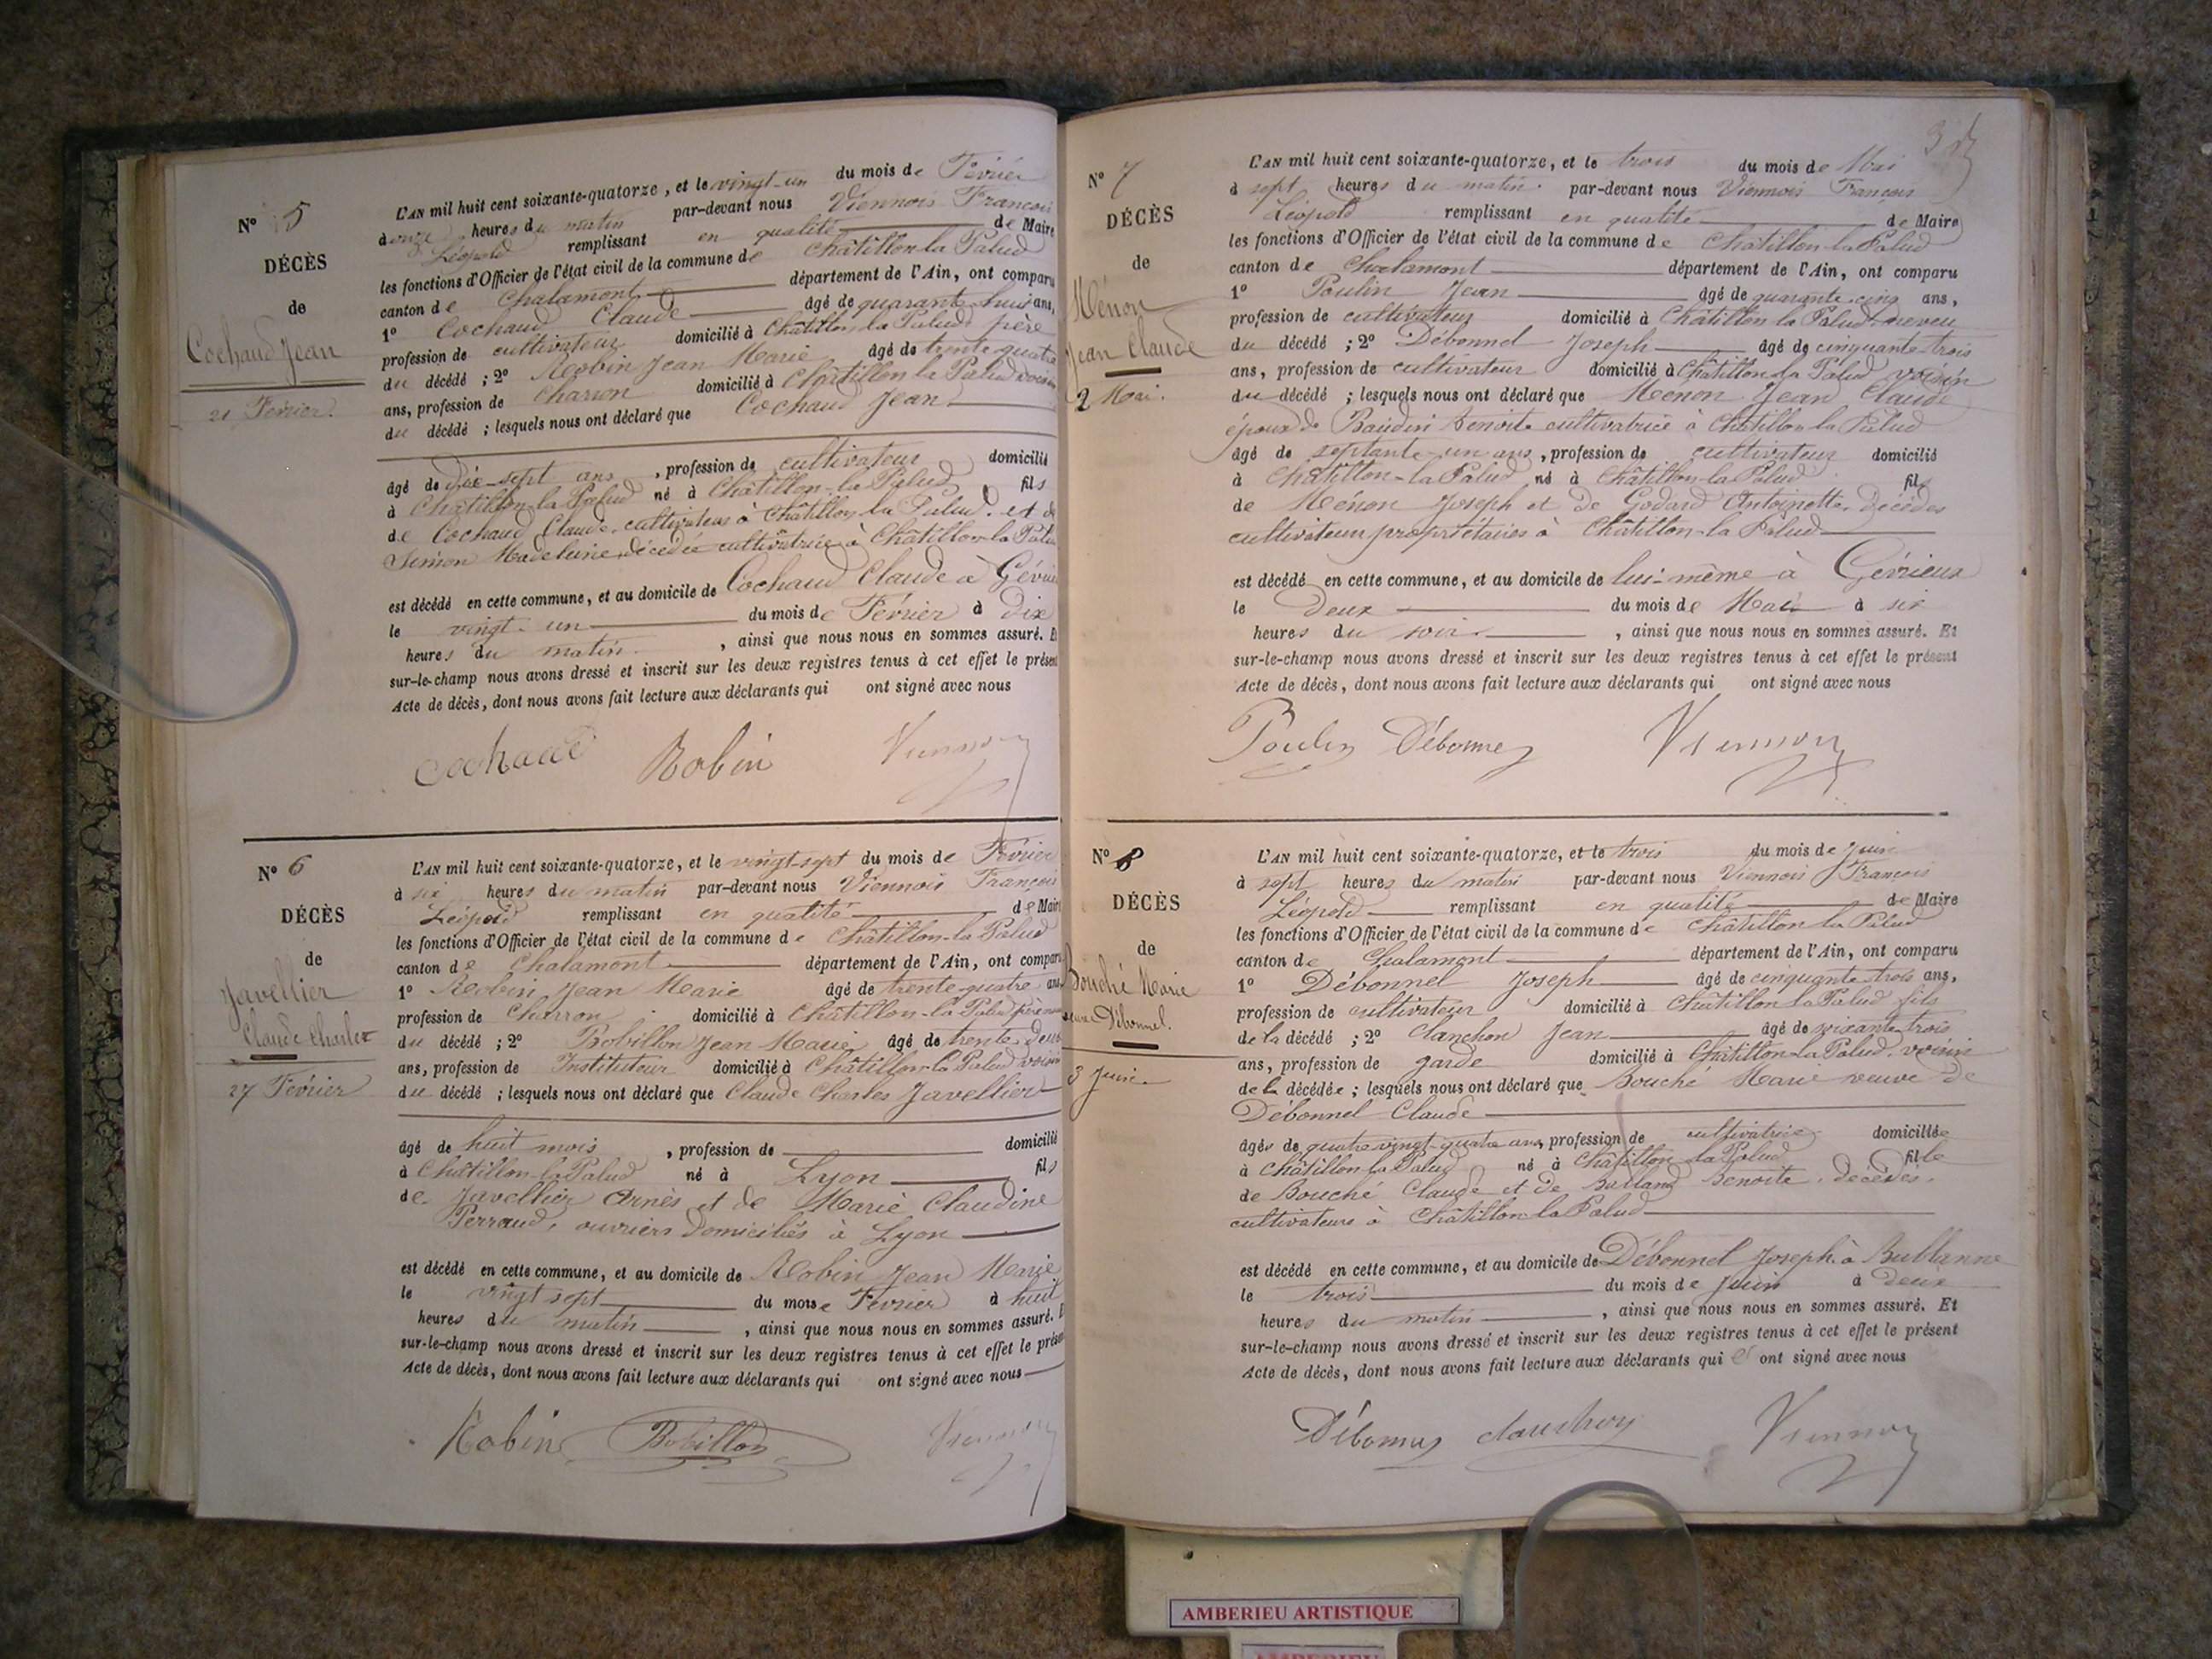 N° 5
DÉCÈS
de
Cochaud Jean
21 Février.
L'AN mil huit cent soixante-quatorze, et le vingt-un du mois de Février
à onze heures du matin par-devant nous Viennois François
Léopold remplissant en qualité de Maire
les fonctions d'Officier de l'état civil de la commune de Châtillon la Palud
canton de Chalamont département de l'Ain, ont comparu
1° Cochaud Claude âgé de quarante-huit ans,
profession de cultivateur domicilié à Châtillon la Palud père
du décédé ; 2° Robin Jean Marie âgé de trente quatre
ans, profession de charron domicilié à Châtillon la Palud voisin
du décédé ; lesquels nous ont déclaré que Cochaud Jean
âgé de dix-sept ans, profession de cultivateur domicilié
à Châtillon-la-Palud né à Châtillon-la-Palud fils
de Cochaud Claude, cultivateur à Châtillon la Palud. et de
Simon Madeleine décédée cultivatrice à Châtillon-la Palud
est décédé en cette commune, et au domicile de Cochaud Claude à Gévrieux
le vingt-un du mois de Février à dix
heures du matin, ainsi que nous nous en sommes assuré. Et
sur-le-champ nous avons dressé et inscrit sur les deux registres tenus à cet effet le présent
Acte de décès, dont nous avons fait lecture aux déclarants qui ont signé avec nous
Cochaud Robin Viennois
N° 6
DÉCÈS
de
Javellier
Claude Charles
27 Février
L'AN mil huit cent soixante-quatorze, et le vingt-sept du mois de Février
à six heures du matin par-devant nous Viennois François
Léopold remplissant en qualité de Maire
les fonctions d'Officier de l'état civil de la commune de Châtillon-la Palud
canton de Chalamont département de l'Ain, ont comparu
1° Robin Jean Marie âgé de trente-quatre ans
profession de Charron domicilié à Châtillon-la Palud père
du décédé ; 2° Bobillon Jean Marie âgé de trente deux
ans, profession de Instituteur domicilié à Châtillon-la Palud voisin
du décédé ; lesquels nous ont déclaré que Claude Charles Javellier
âgé de huit mois, profession de domicilié
à Châtillon-la Palud né à Lyon fils
de Javellier et de Marie Claudine
Perraud, ouvriers domiciliés à Lyon
est décédé en cette commune, et au domicile de Robin Jean Marie
le vingt sept du mois e Février à huit
heures du matin, ainsi que nous nous en sommes assuré. Et
sur-le-champ nous avons dressé et inscrit sur les deux registres tenus à cet effet le présent
Acte de décès, dont nous avons fait lecture aux déclarants qui ont signé avec nous
Robin Bobillon Viennois
3
N° 7
DÉCÈS
de
Ménon
Jean Claude
2 Mai.
L'AN mil huit cent soixante-quatorze, et le trois du mois de Mai
à sept heures du matin. par-devant nous Viennois François
Léopold remplissant en qualité de Maire
les fonctions d'Officier de l'état civil de la commune de Châtillon-la Palud
canton de Chalamont département de l'Ain, ont comparu
1° Poulin Jean âgé de quarante-cinq ans,
profession de cultivateur domicilié à Châtillon la Palud neveu
du décédé ; 2° Débonnel Joseph âgé de cinquante-trois
ans, profession de cultivateur domicilié à Châtillon la Palud voisin
du décédé ; lesquels nous ont déclaré que Menon Jean Claude
époux de Baudin Benoite cultivatrice à Châtillon la Palud
âgé de septante-un ans, profession de cultivateur domicilié
à Châtillon-la Palud né à Châtillon-la Palud fils
de Ménon Joseph et de Godard Antoinette, décédés
cultivateurs propriétaires à Châtillon-la Palud
est décédé en cette commune, et au domicile de lui-même à Gévrieux
le deux du mois de Mai à six
heures du soir, ainsi que nous nous en sommes assuré. Et
sur-le-champ nous avons dressé et inscrit sur les deux registres tenus à cet effet le présent
Acte de décès, dont nous avons fait lecture aux déclarants qui ont signé avec nous
Poulin Débonnel Viennois
N° 8
DÉCÈS
de
Bouché Marie
veuve Débonnel.
3 Juin
L'AN mil huit cent soixante-quatorze, et le trois du mois de Juin
à sept heures du matin par-devant nous Viennois François
Léopold remplissant en qualité de Maire
les fonctions d'Officier de l'état civil de la commune de Châtillon la Palud
canton de Chalamont département de l'Ain, ont comparu
1° Débonnel Joseph âgé de cinquante-trois ans,
profession de cultivateur domicilié à Châtillon la Palud fils
de la décédé ; 2° Clanchon Jean âgé de soixante-trois
ans, profession de garde domicilié à Châtillon-la Palud, voisin
de la décédée ; lesquels nous ont déclaré que Bouché Marie veuve de
Débonnel Claude
âgée de quatre vingt-quatre ans, profession de cultivatrice domiciliée
à Châtillon-la Palud né à Châtillon la Palud fille
de Bouché Claude et de Benoite, décédés,
cultivateurs à Châtillon la Palud
est décédé en cette commune, et au domicile de Débonnel Joseph à Bublanne
le trois du mois de Juin à deux
heures du matin, ainsi que nous nous en sommes assuré. Et
sur-le-champ nous avons dressé et inscrit sur les deux registres tenus à cet effet le présent
Acte de décès, dont nous avons fait lecture aux déclarants qui ont signé avec nous
Débonnel Clanchon Viennois
AMBERIEU ARTISTIQUE
AMBERIEU